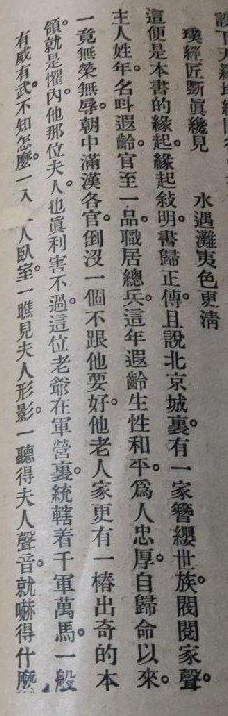 璞經匠斵眞纔見　水遇灘夷色更清
這便是本書的緣起。緣起敍明。書歸正傳。且說北京城裏。有一家簪纓世族。閥閱家聲。
主人姓年。名叫遐齡。官至一品。職居總兵。這年遐齡生性和平。爲人忠厚。自歸命以來。
一竟無榮無辱。朝中滿漢各官。倒沒一個不跟他要好。他老人家更有一樁出奇的本
領。就是懼內。他那位夫人。也眞利害不過。這位老爺在軍營裏。統轄着千軍萬馬。一般
有威有武。不知怎麼。一入人臥室。一瞧見夫人形影。一聽得夫人聲音。就嚇得什麼